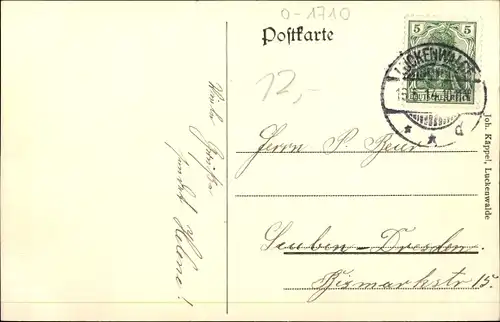 0-1710
Postkarte
12,-
5 5
LUCKENWALDE
* * d
Herrn P. Beier
Leuben-Dresden
Bismarckstr 15.
sendet Helene!
Joh. Käppel, Luckenwalde